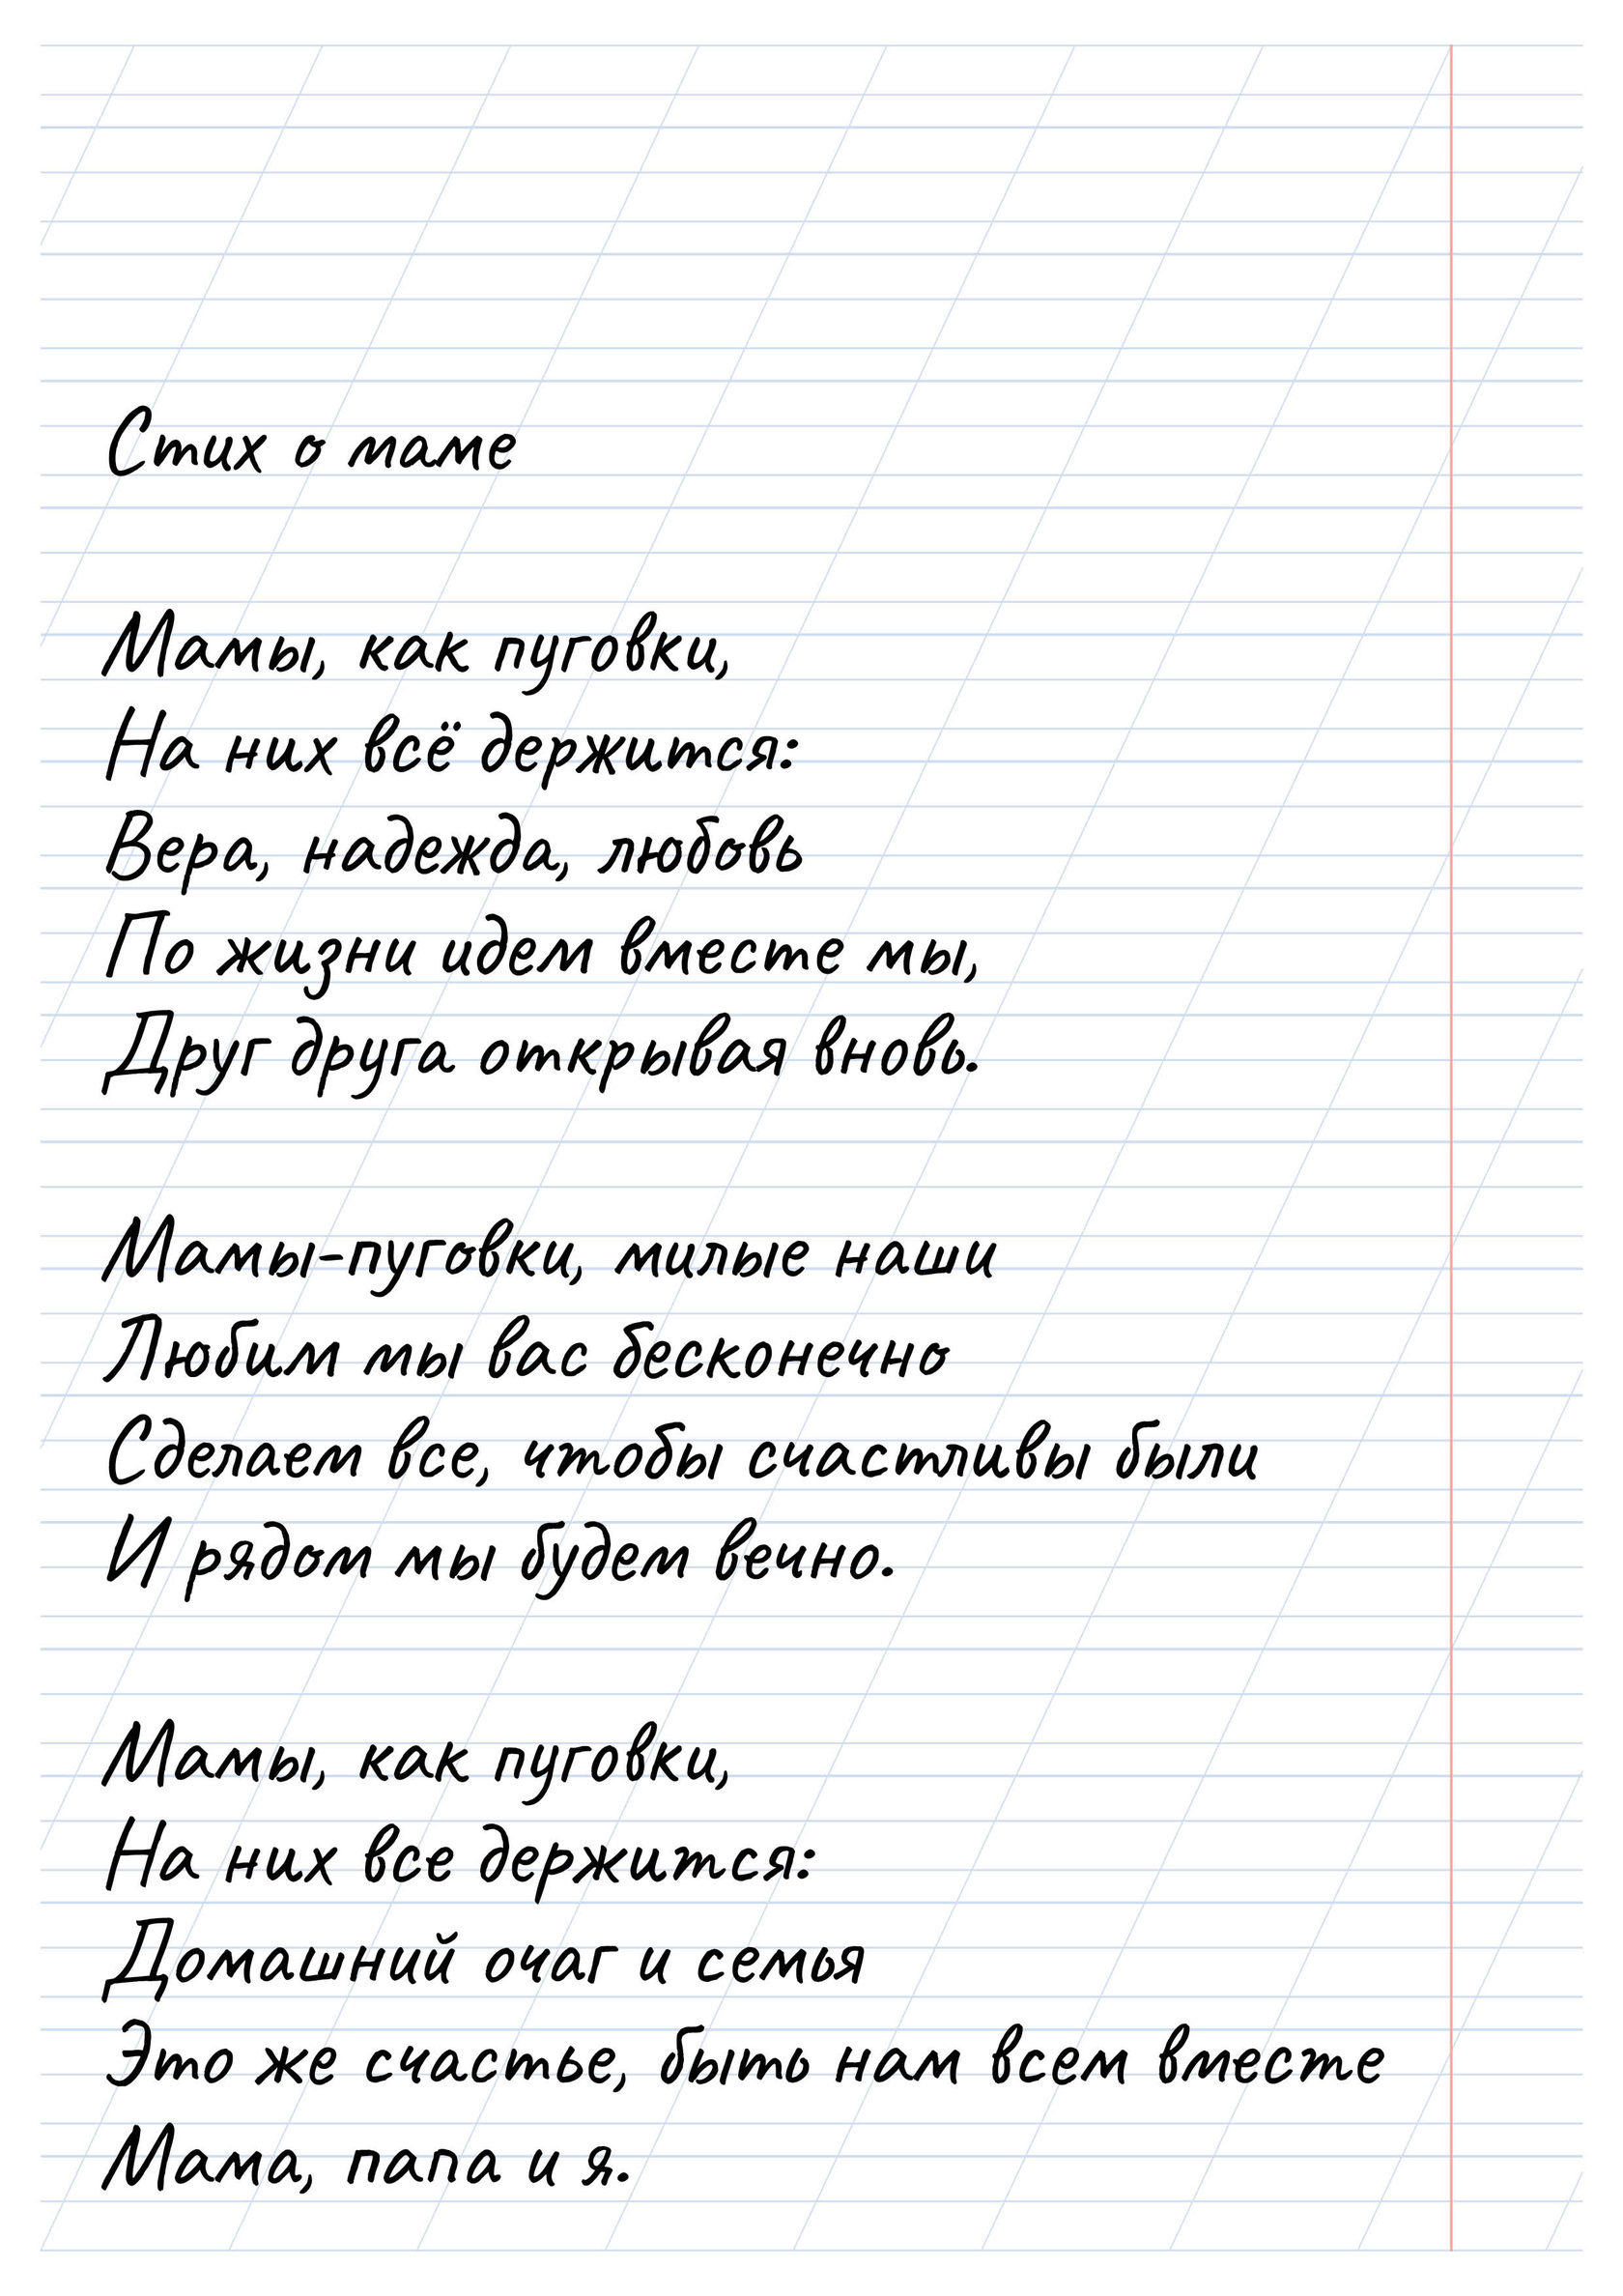 Стих о маме
Мамы, как пуговки,
На них всё держится:
Вера, надежда, любовь
По жизни идем вместе мы,
Друг друга открывая вновь.
Мамы-пуговки, милые наши
Любим мы вас бесконечно
Сделаем все, чтобы счастливы были
И рядом мы будем вечно.
Мамы, как пуговки,
На них все держится:
Домашний очаг и семья
Это же счастье, быть нам всем вместе
Мама, папа и я.